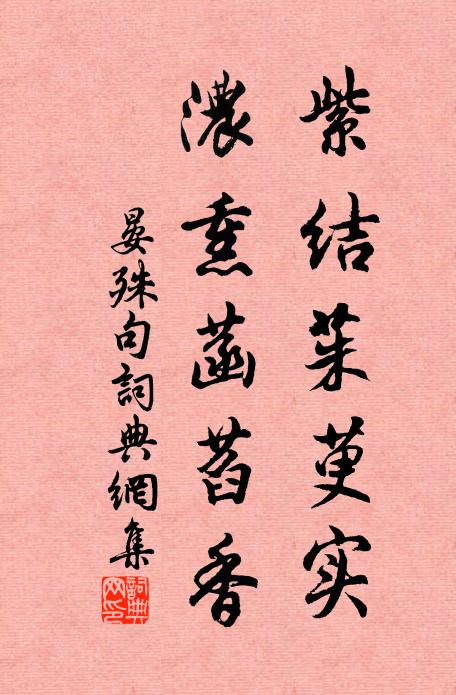 紫结茱萸实
濃熏菡萏香
晏殊句詞典網集
詞典网印